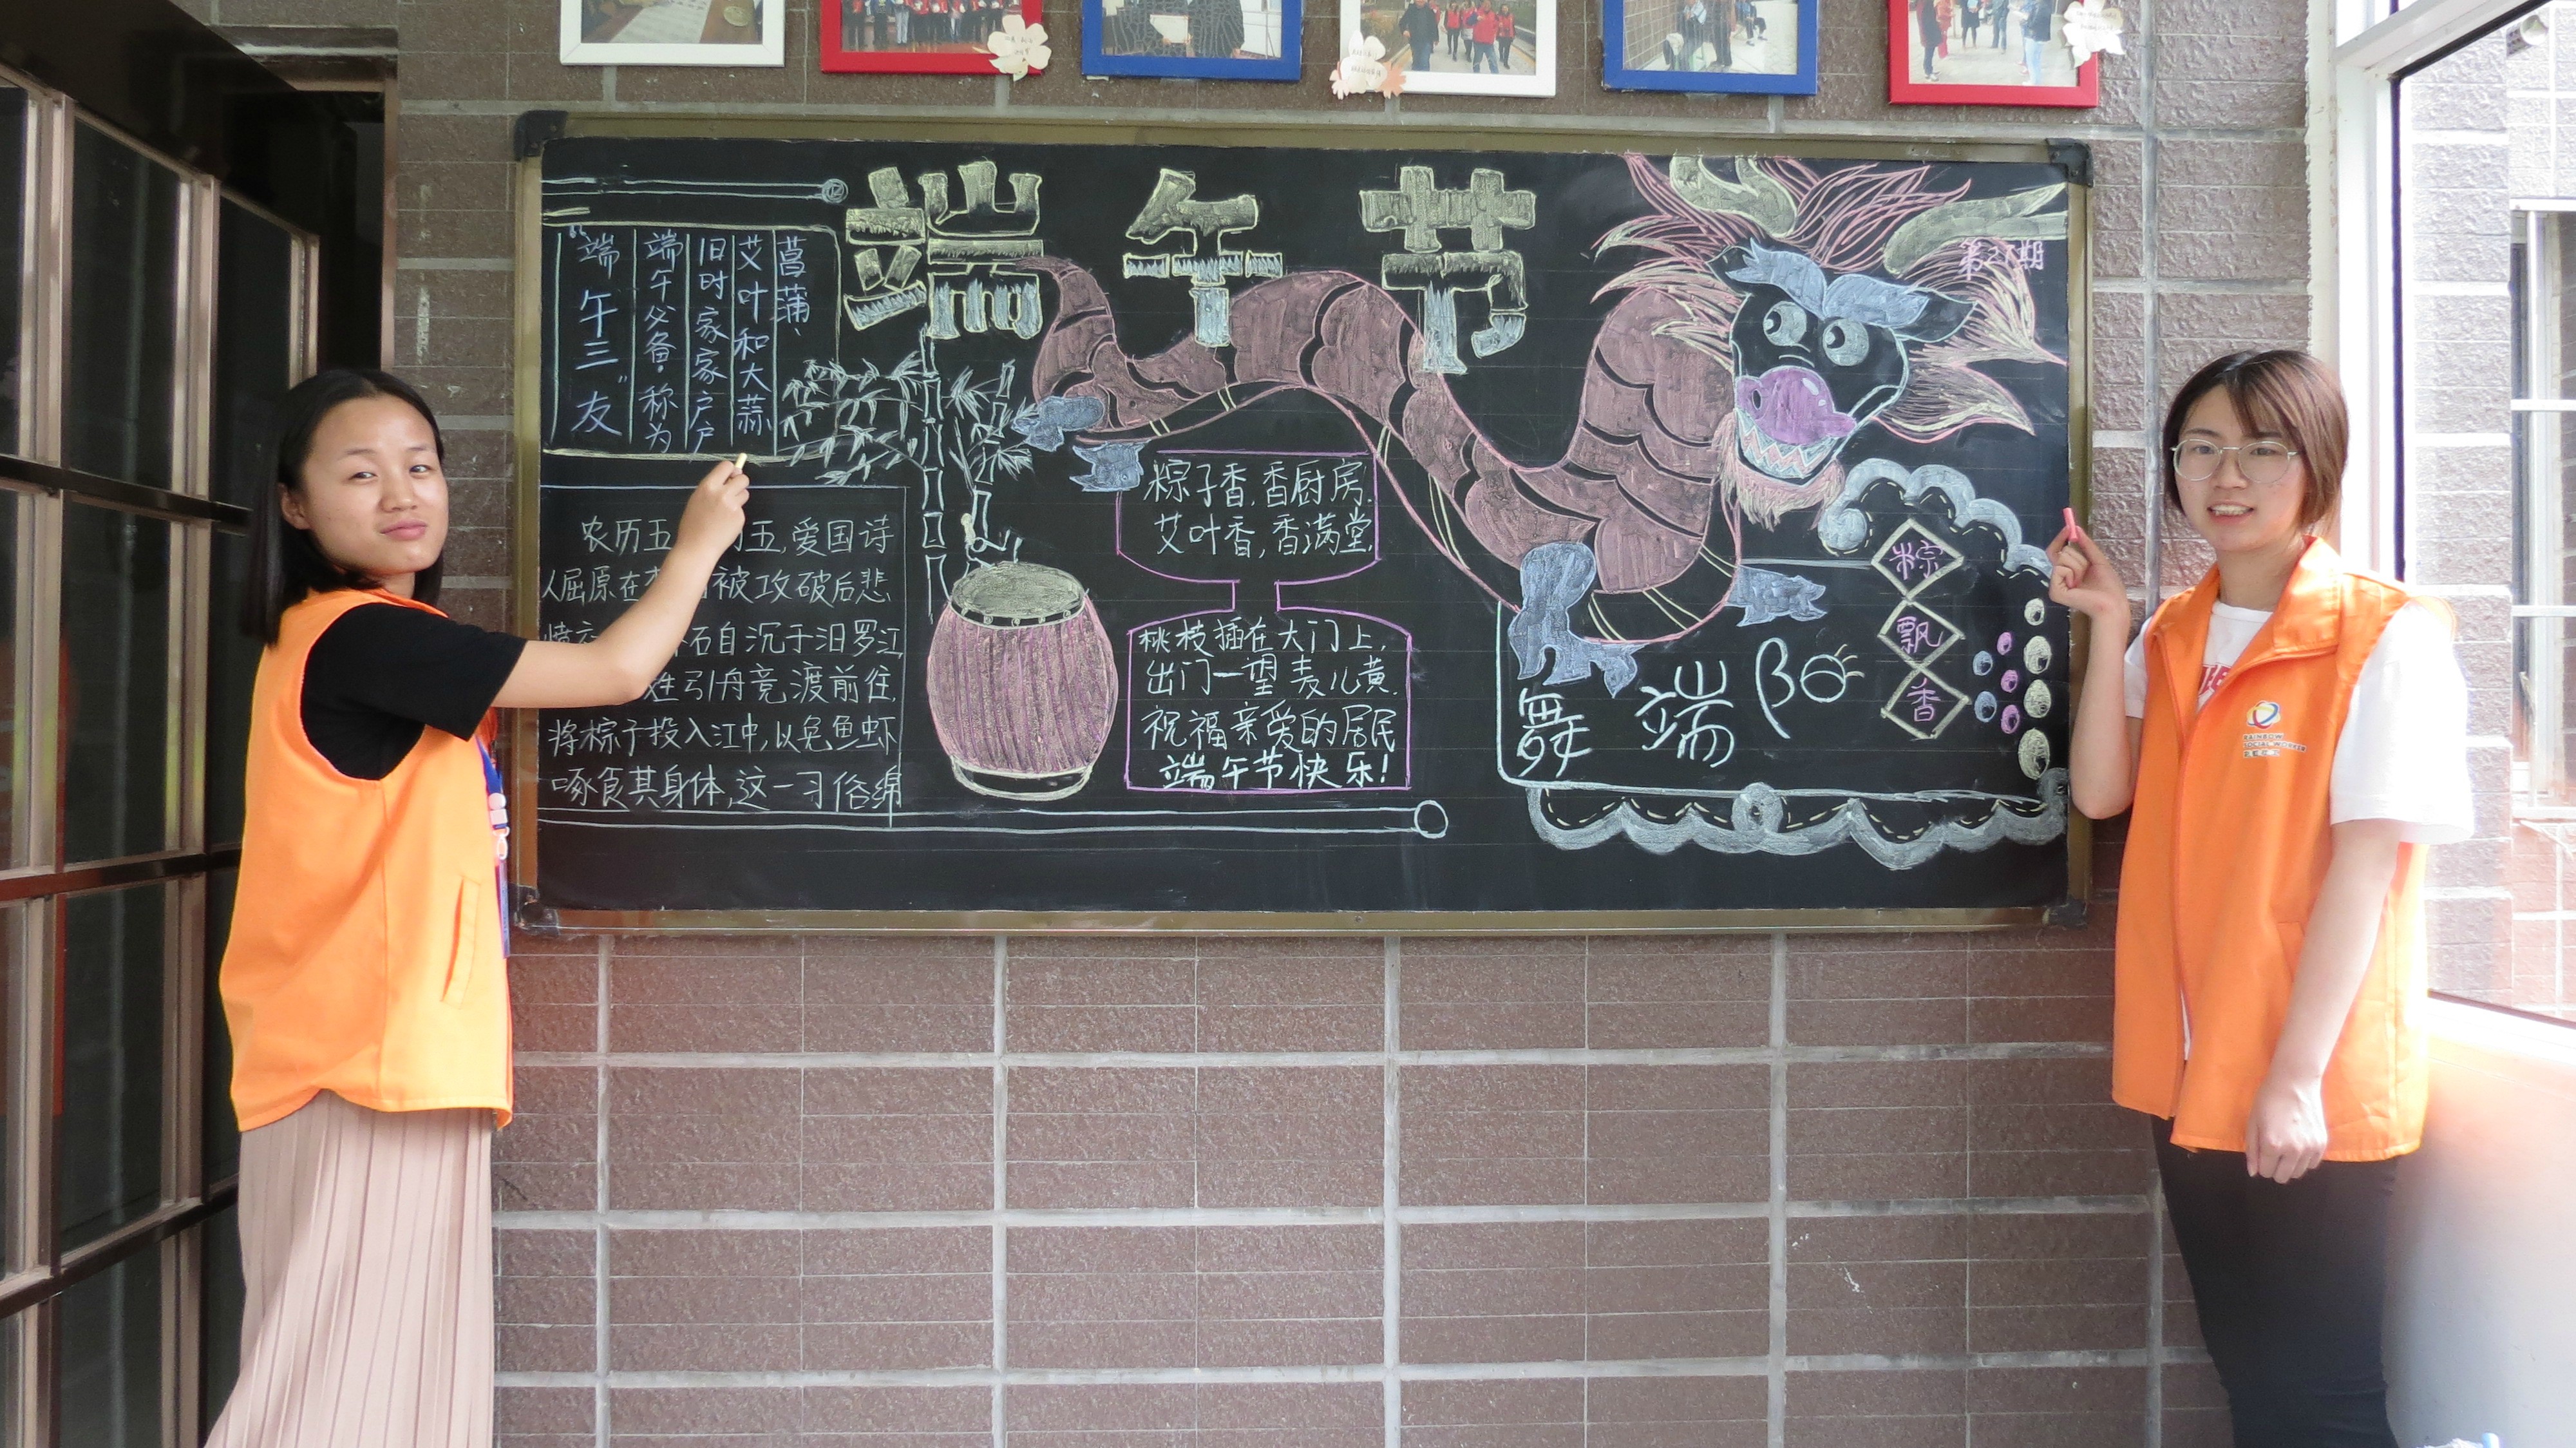 端午节
第27期
菖蒲、
艾叶和大蒜
旧时家家户户
端午必备.称为
“端午三友”
农历五 五,爱国诗
人屈原在 被攻破后悲
石自沉于汨罗江
姓引舟竞渡前往,
将粽子投入江中,以免鱼虾
啄食其身体,这一习俗绵
粽子香,香厨房.
艾叶香,香满堂.
桃枝插在大门上,
出门一望麦儿黄.
祝福亲爱的居民
端午节快乐!
舞端阳
粽
飘
香
RAINBOW
SOCIAL WORKER